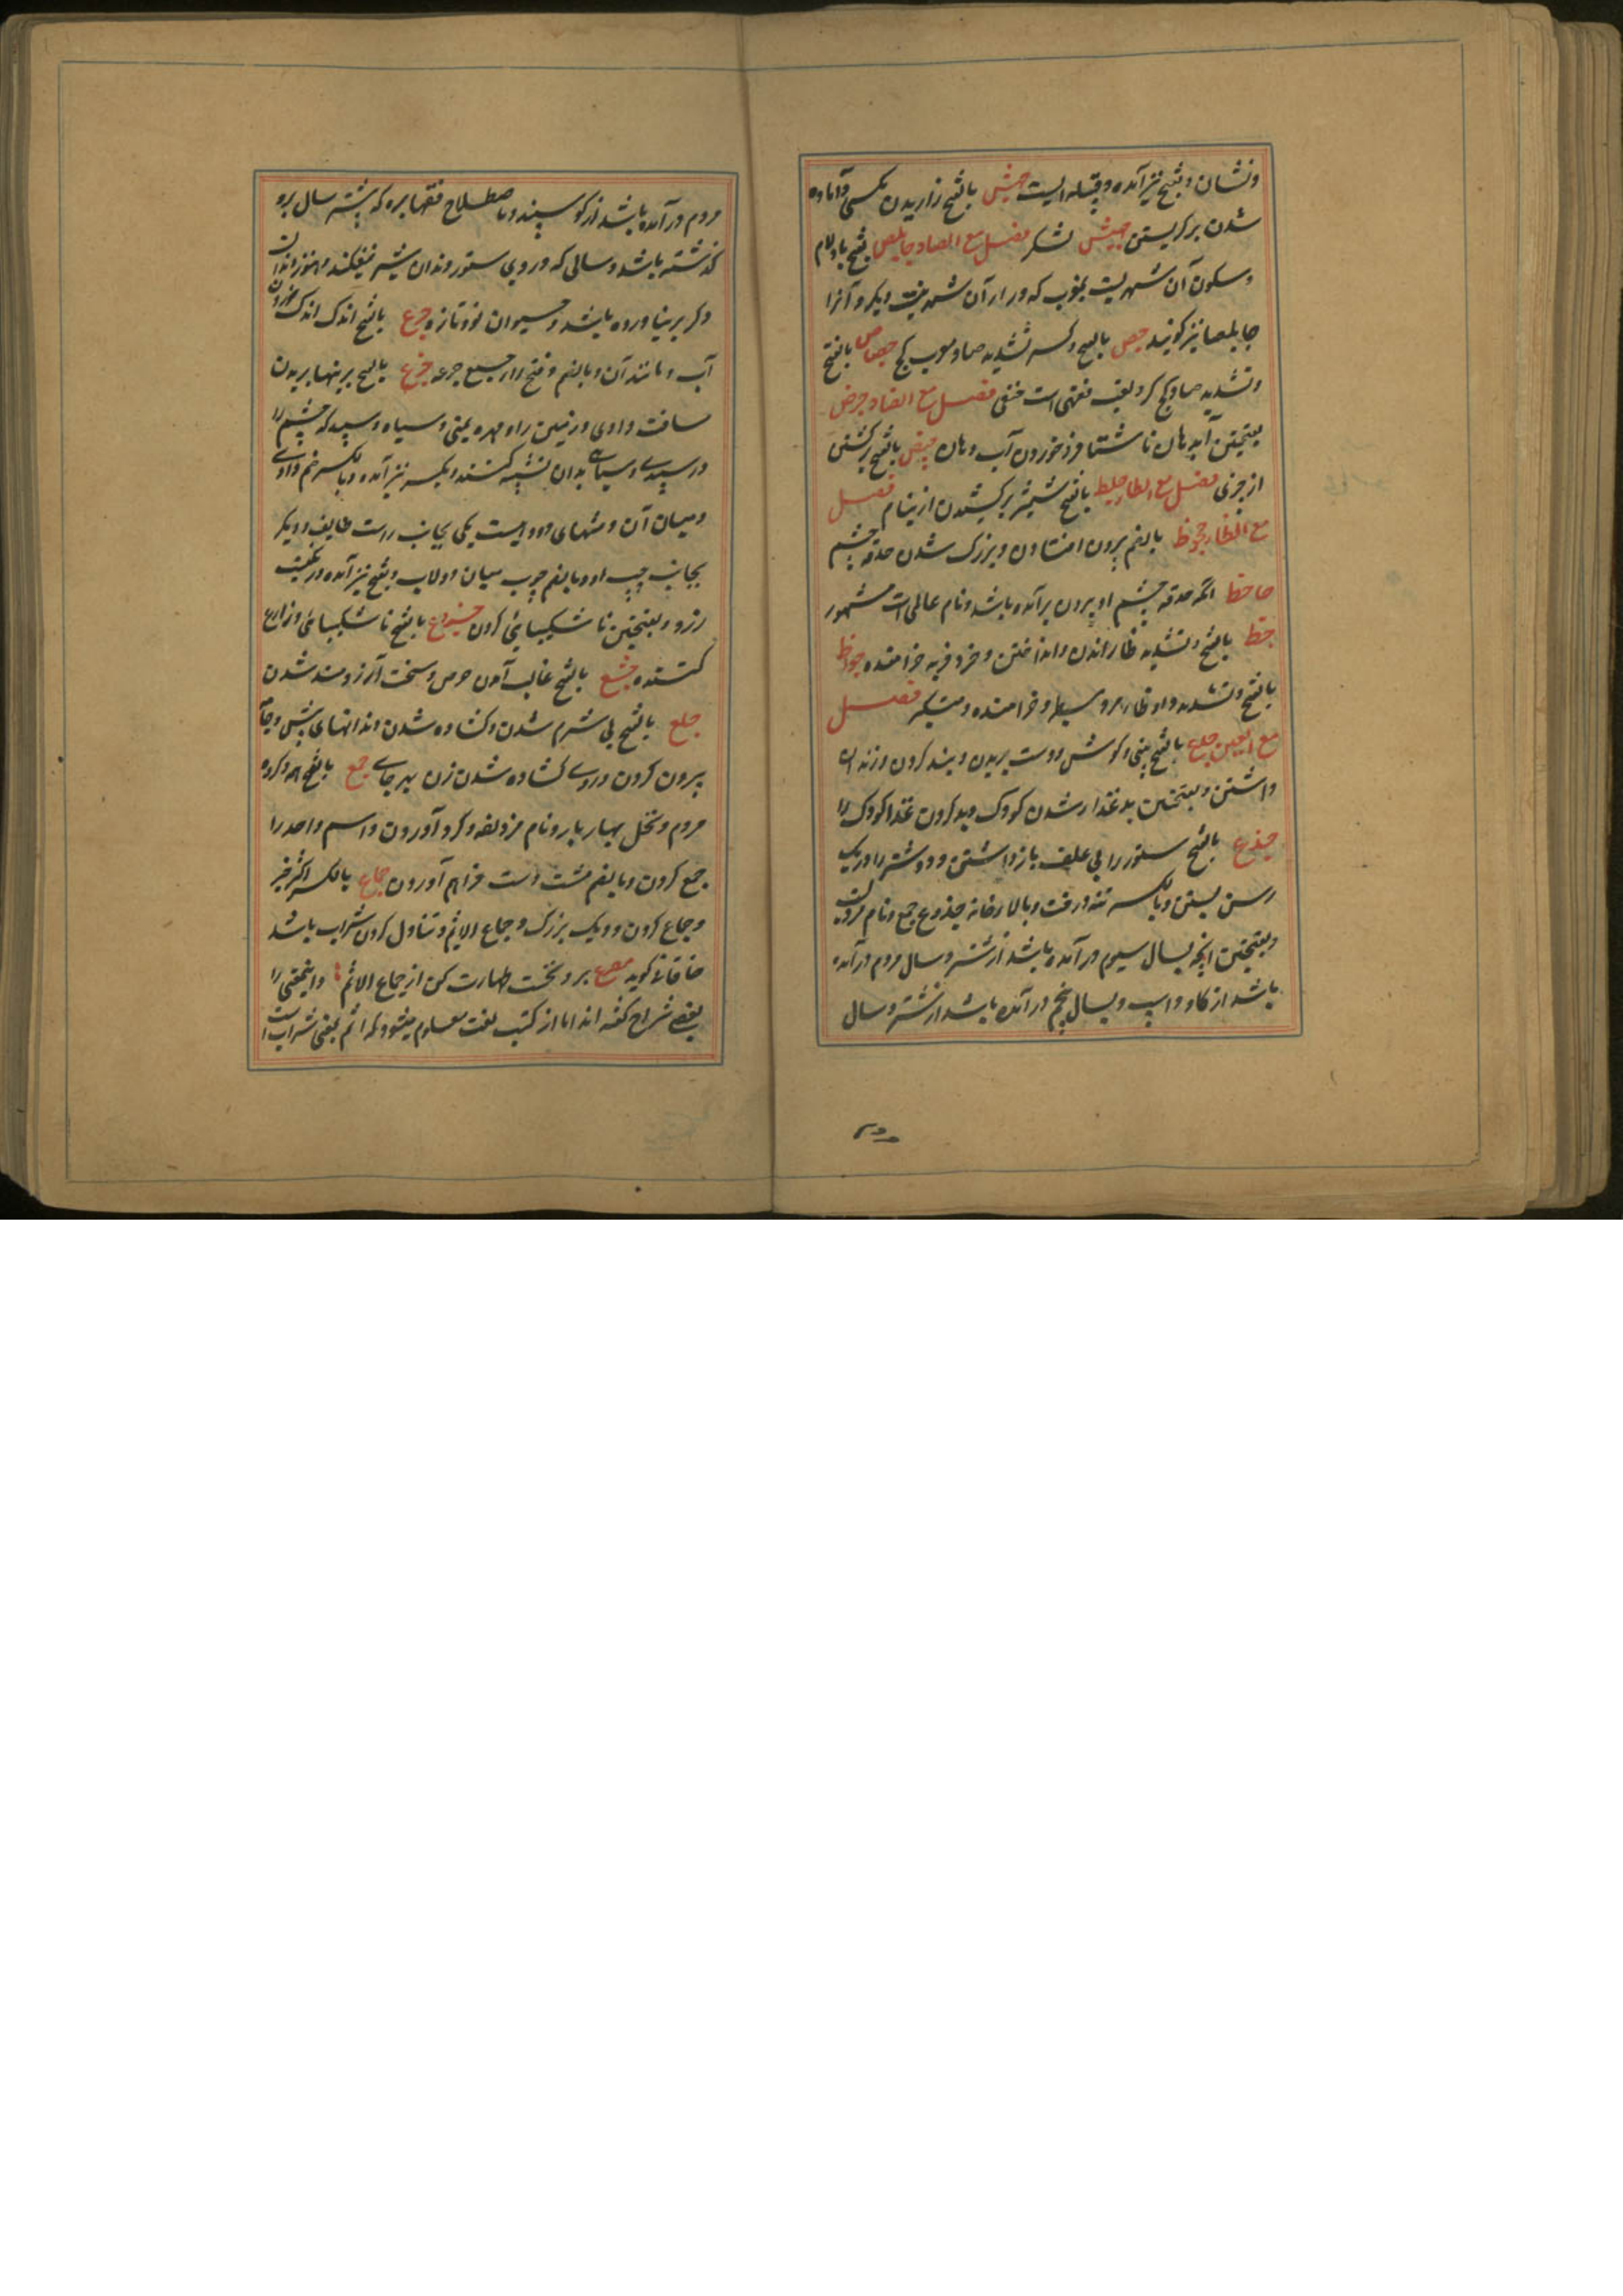 ونشان و بفتح نیز آمده و قبیله ایست جیش بالفتح زاریدن بکسی و آماده
شدن بر کریستن جیش لشکر فصل مع الصاد جابلص بفتح با و لام
وسکون آن شهریست بمغرب که ورا آن شهر نیست دیکر و آنرا
جابلصا نیز کویند جص بالفتح وکسر تشدید صاد معرب کچ جصاص بالفتح
وتشدید صاد کچ کر ولقب فقهی است حنفی فصل مع الضاد جرض
بفتحتین آب دهان ناشتا فرو خوردن آب دهان جیض بالفتح برکشتن
از چیزی فصل مع الطا جلط بالفتح شمشیر برکشیدن از نیام فصل
مع الظا جحوظ بالضم بیرون افتادن و بزرک شدن حدقه چشم
جاحظ انکه حدقه چشم او بیرون برآمده باشد ونام عالمی است مشهور
جظ بالفتح وتشدید ظا راندن وانداختن ومرد فربه خرامنده جواظ
بالفتح وتشدید واو وظا مرد بسیار خرامنده ومتکبر فصل
مع العین جدع بالفتح بینی وکوش ودست بریدن وبند کردن وزندان
داشتن وبفتحتین بد غذا شدن کودک وبد کردن غذا کودک را
جذع بالفتح ستور را بی علف باز داشتن ودو شتر را در یک
رسن بستن وبالکسر تنه درخت وبالا رخانه جذوع جمع ونام مردیست
وبفتحتین انچه بسال سیوم در آمده باشد از شتر وسال دوم در آمده
باشد از کاو واسپ وبسال پنجم در آمده باشد از شتر وسال
دوم در آمده باشد از کوسپند وباصطلاح فقها بره که بیشتر سال برو
کذشته باشد وسالی که در وی ستور دندان شیر نیفکند وهنوز دندان
دکر بر نیاورده باشد وحیوان نو وتازه جرع بالفتح اندک اندک خوردن
آب ومانند آن وبالضم وفتح را جمع جرعه جزع بالفتح بریدن
مسافت وادی وزمین را ومهره یمنی وسیاه وسپید که چشم را
در سپیدی وسیاهی بدان تشبیه کنند وبکسر نیز آمده وبالکسر خم وادی
ومیان آن ومنتهای وادیست یکی بجانب راست طایف ودیکر
بجانب چپ او وبالضم چوب میان دولاب وبفتح نیز آمده
زرد وبفتحتین ناشکیبائی کردن جزوع بالفتح ناشکیبائی وزاری
کننده جشع بالفتح غالب آمدن حرص وسخت آرزومند شدن
جلع بالفتح بی شرم شدن وکشاده شدن دندانهای پیش وجامه
بیرون کردن وروی کشاده شدن زن بهر جای جمع بالفتح همه وکروه
مردم ونخل بسیار بار ونام مزدلفه وکرد آوردن واسم واحد را
جمع کردن وبالضم مشت دست فراهم آوردن جماع بالکسر
وجماع کردن ودیک بزرک وجماع الاثم وتناول کردن شراب باشد
خاقانی کوید مصرع برو نخست طهارت کن از جماع الاثم واینمعنی را
بعضی شراح کفته اند اما از کتب لغت معلوم میشود که اثم بمعنی شراب است